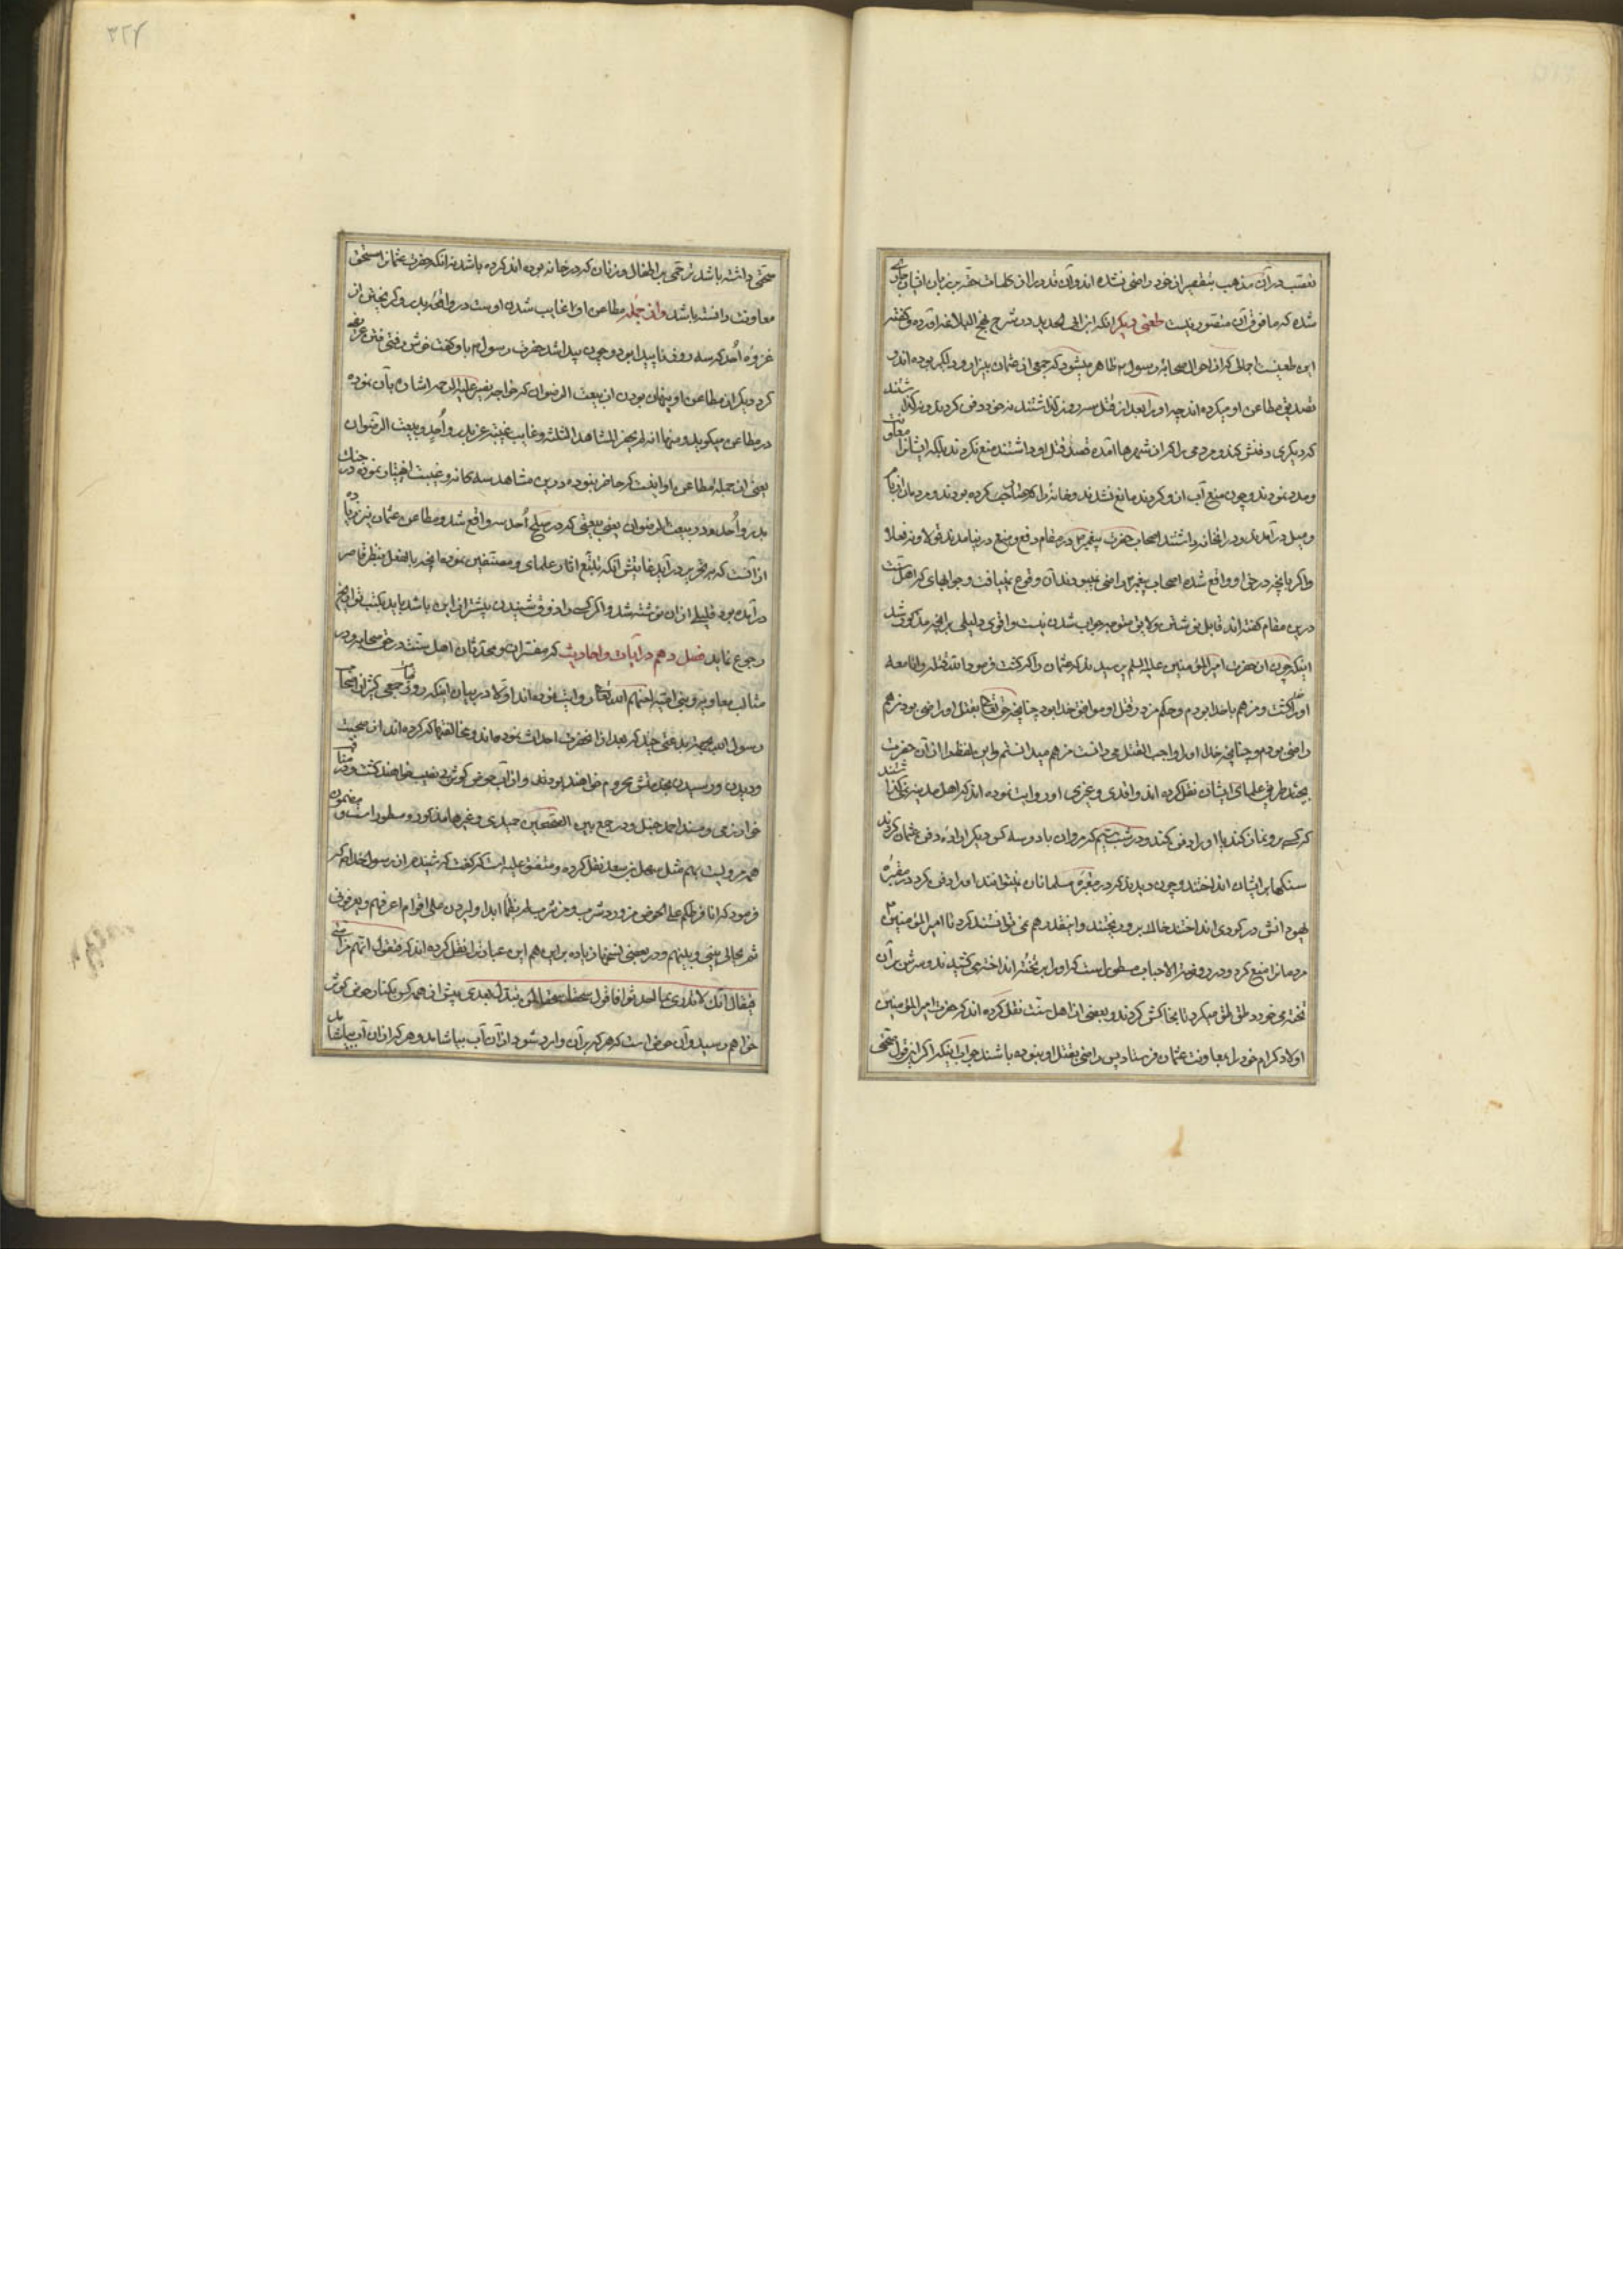 تعصب در آن مذهب بتقصیر از خود راضی نشده اند و آن قدر از آن کلمات حقه بر زبان ایشان جاری
شده که ما فوق آن متصور نیست طعنی دیگر آنکه ابن ابی الحدید در شرح نهج البلاغه آورده و گفته
این طعنیست اجلی که از احوال صحابه رسول ظاهر میشود که جمعی از عثمان بیزار و دلگیر بوده اند و
تصدیق مطاعن او میکرده اند چه او را بعد از قتل سه روز گذاشتند نه خود دفن کردند و نه گذاشتند
که دیگری دفنش کند و مردمی را که از شهرها آمده قصد قتل او داشتند منع نکردند بلکه ایشانرا معاونت
و مدد نمودند و چون منع آب از او کردند مانع نشدند و خانه را که محاصره کرده بودند و مردمان از بام
و میل در آمدند و در آنخانه داشتند اصحاب حضرت پیغمبر در مقام دفع و منع در نیامدند نه قولا و نه فعلا
و اگر بآنچه در حق او واقع شده اصحاب پیغمبر راضی نمیبودند آن وقوع نمییافت و جوابهای که اهل سنت
درین مقام گفته اند قابل نوشتن و لایق متوجه جواب شدن نیست و اقوی دلیلی بر آنچه مذکور شد
اینکه چون از حضرت امیر المؤمنین علیه السلم پرسیدند که عثمان را که کشت فرمود الله قتله و انا معه
او را کشت و من هم با خدا بودم و حکم من در قتل او موافق خدا بود چنانچه حق تعالی بقتل او راضی بود من هم
راضی بودم و چنانچه خدا او را واجب القتل می دانست من هم میدانستم و این لفظ را از آن حضرت
بچند طریق علمای ایشان نقل کرده اند و واقدی و غیری او روایت نموده اند که اهل مدینه نمی گذاشتند
که کسی بر او نماز کند یا او را دفن کند و در شب سیم که مروان با دو سه کس دیگر اراده دفن عثمان کردند
سنگها بر ایشان انداختند و چون دیدند که در مقبره مسلمانان نمیتوانند او را دفن کرد در مقبره
یهود انش در گودی انداختند خاک بر او ریختند و اینقدر هم نمی توانستند کرد تا امیر المؤمنین
مردمانرا منع کرد و در روضة الاحباب مسطور است که او را بر تخته انداخته می کشیدند و سرش بر آن
تخته می خورد و طق طق میکرد تا بخاکش کردند و بعضی از اهل سنت نقل کرده اند که حضرت امیر المؤمنین
اولاد کرام خود را بمعاونت عثمان فرستاد پس راضی بقتل او نبوده باشند جواب اینکه اگر این قول صحتی
صحتی داشته باشد ترحمی بر اطفال و زنان که در خانه بوده اند کرده باشد نه آنکه حضرت عثمانرا مستحق
معاونت دانسته باشد و از جمله مطاعن او غایب شدن اوست در واقعه بدر و گریختن از
غزوه اُحد که سه روز ناپیدا بود و چون پیدا شد حضرت رسول م باو گفت خوش رفتی
کرد و دیگر از مطاعن او پنهان بودن از بیعت الرضوان که خواجه نصیر علیه الرحمه اشاره بآن نموده
در مطاعن میگوید و منها انه لم یحضر المشاهد الثلثة و غایب غیبته عن بدر و اُحد و بیعت الرضوان
یعنی از جمله مطاعن او اینست که حاضر نبوده درین مشاهد سه گانه و غیبت اختیار نموده در جنگ
بدر و اُحد بود و بیعت الرضوان یعنی بیعتی که در واقع شد و مطاعن عثمان نیز زیاده
از آنست که بتحریر در آید غایتش آنکه تتبع آثار علمای و مصنفین نموده آنچه بالفعل بنظر قاصر
در آمده بود قلیلی از آن نوشته شد و اگر کسی را ذوق شنیدن بیشتر از این باشد باید بکتب تواریخ
رجوع نماید فصل دهم در آیات و احادیث که مفسران و محدثان اهل سنت در حق صحابه و در
مثالب معاویه و بنی امیه لعنهم الله تعالی روایت نموده اند اولا در بیان اینکه روز قیامت جمعی کثیر از اصحاب
رسول الله بجهت بدعتی چند که بعد از آنحضرت احداث نموده اند و مخالفتها که کرده اند از صحبت
و دیدن و رسیدن بخدمتش محروم خواهند بود و از آب حوض کوثر بی نصیب خواهند گشت و در مناقب
خوارزمی و مسند احمد حنبل و در جمع بین الصحیحین حمیدی و غیرها مذکور و مسطور است و مضمون
همه مرویست بهم مثل سهل بن سعد نقل کرده و متفق علیه است که گفت که شنیدم از رسول خدا که
فرمود که انا فرطکم علی الحوض من ورد شرب و من شرب لم یظمأ ابدا و لیردن علی اقوام اعرفهم و یعرفونی
ثم یحال بینی و بینهم و در بعضی نسخها زیاده بر این هم این عبارترا نقل کرده اند که فتقول انهم من امتی
فیقال انک لا تدری ما احدثوا فاقول سحقا سحقا لمن بدل بعدی پیش از همه کس بکنار حوض کوثر
خواهم رسید و آن حوضی است که هر که بر آن وارد شود از آن آب بیاشامد و هر که از آن آب بیاشامد